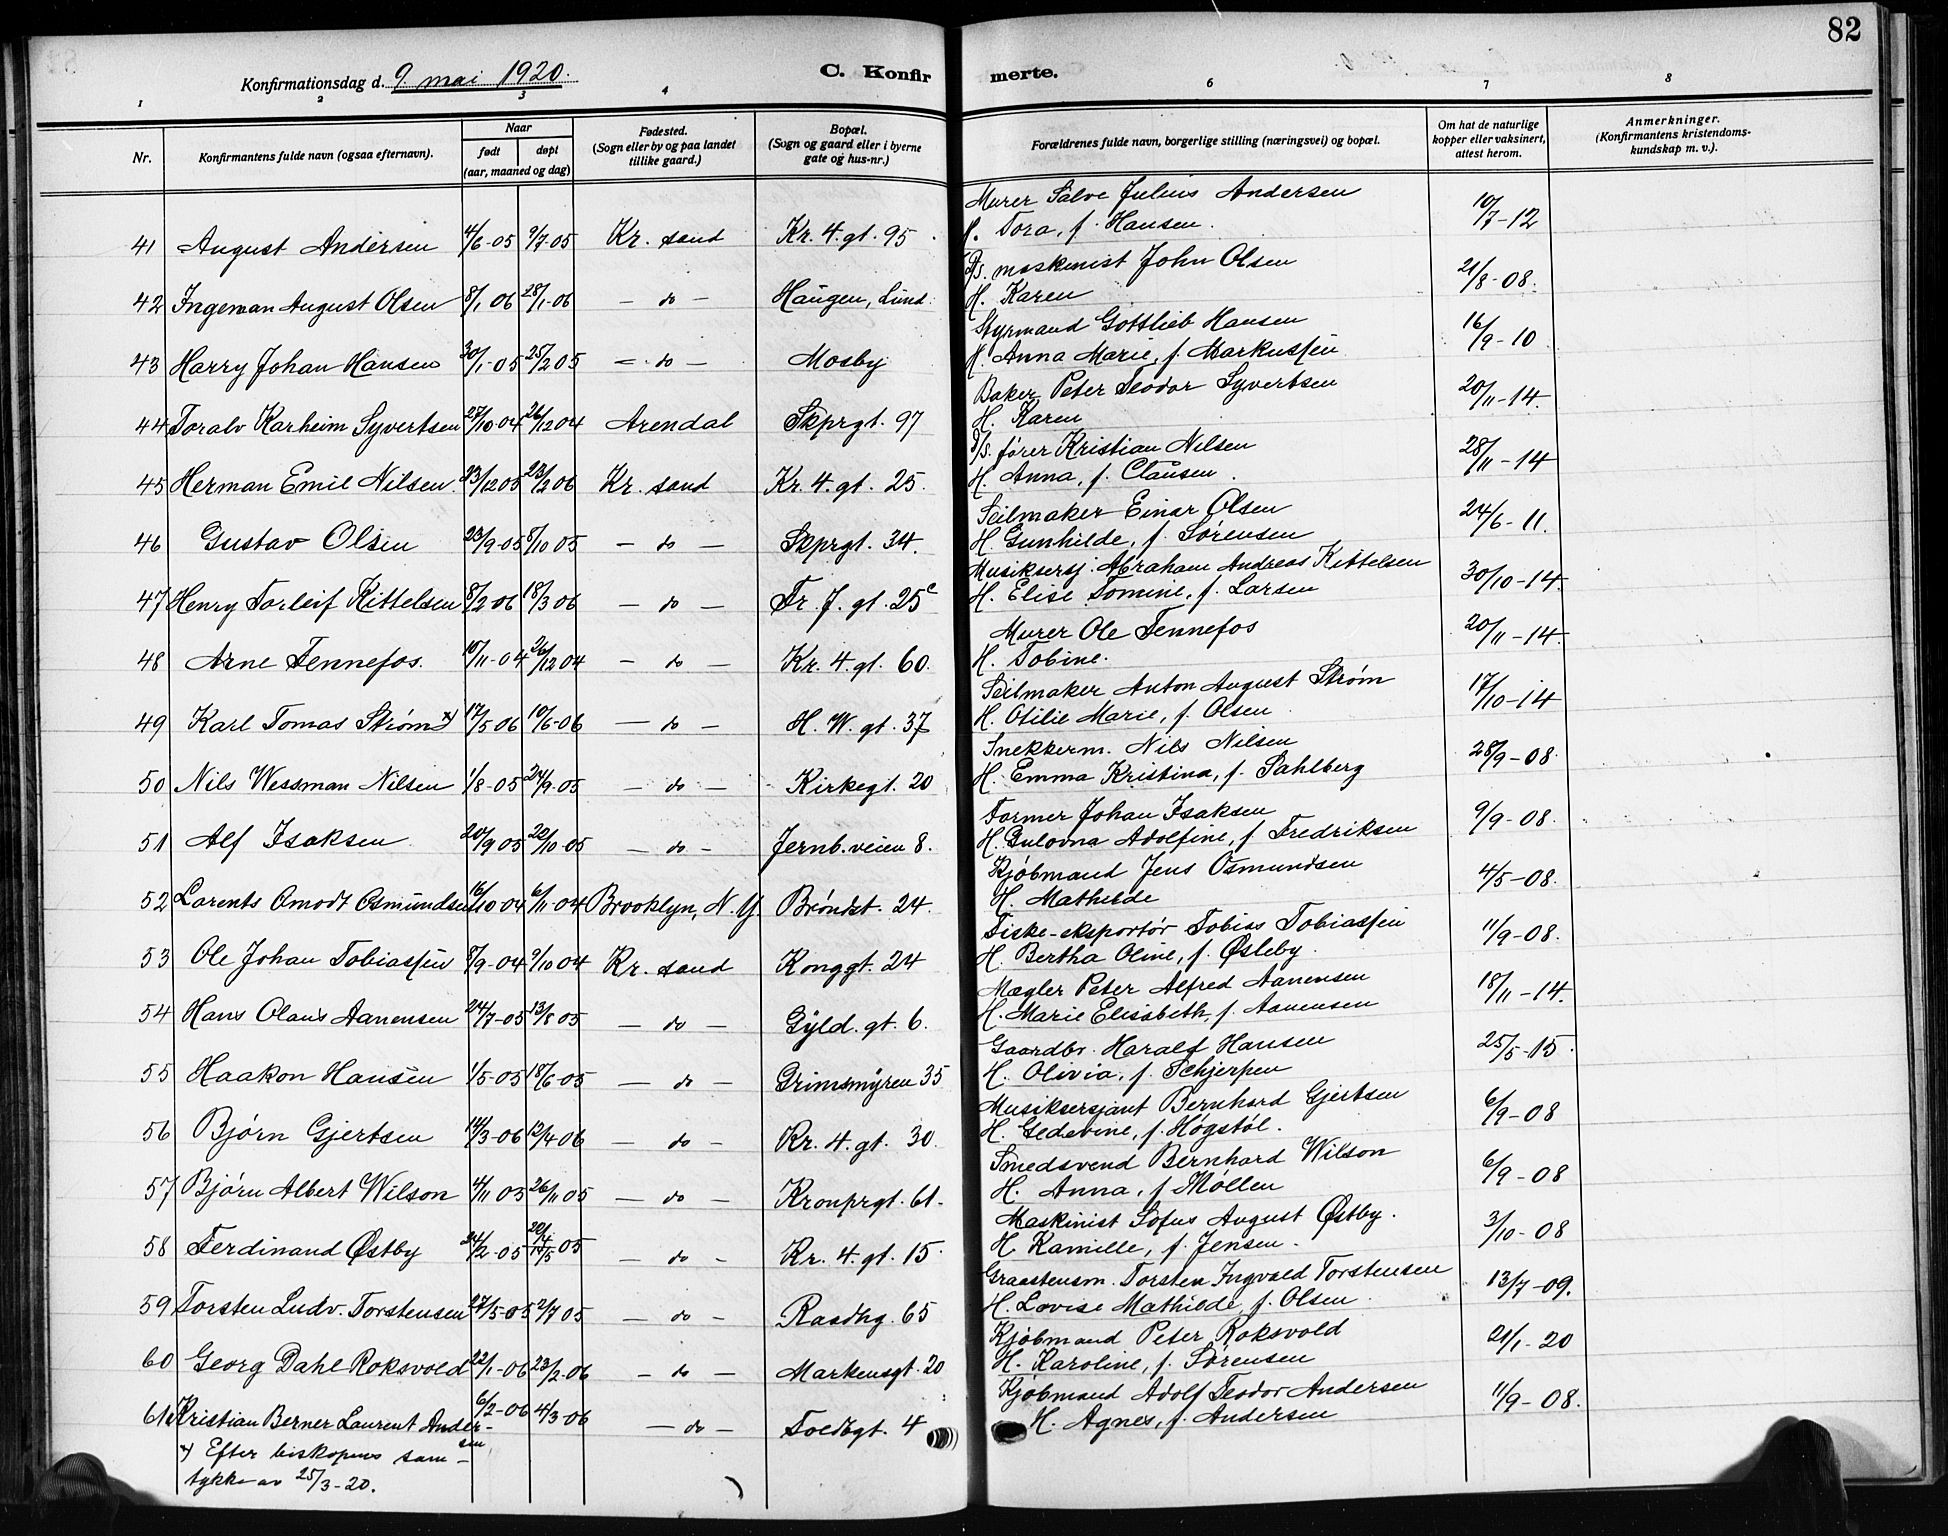 82
Konfirmationsdag d. 9. mai 1920.
C. Konfirmerte.
1 2 3 4 6 7 8
Nr. | Konfirmantens fulde navn (ogsaa efternavn). | Naar født døpt (aar, maaned og dag) | Fødested. (Sogn eller by og paa landet tillike gaard.) | Bopæl. (Sogn og gaard eller i byerne gate og hus-nr.) | Forældrenes fulde navn, borgerlige stilling (næringsvei) og bopæl. | Om hat de naturlige kopper eller vaksinert, attest herom. | Anmerkninger. (Konfirmantens kristendomskundskap m. v.).
41 August Andersen 4/6-05 9/7-05 Kr. sand Kr. 4. gt. 95. Murer Salve Julius Andersen 10/7-12
H. Tora, f. Hansen.
42 Ingeman August Olsen 8/1 06 28/1-06 – do – Haugen, Lund. D/s. maskinist John Olsen 21/8-08.
H. Karen
43 Harry Johan Hansen 30/1-05 25/2 05 – do – Mosby Styrmand Gottlieb Hansen 16/9-10
H. Anna Marie, f. Markussen
44 Toralv Karheim Syvertsen 27/10-04 26/12 04 Arendal Skprgt. 97 Baker Peter Teodor Syvertsen 20/11-14.
H. Karen
45 Herman Emil Nilsen 23/12 05 23/2 06 Kr. sand Kr. 4. gt. 25. D/s. fører Kristian Nilsen 28/11-14
H. Anna, f. Clausen.
46 Gustav Olsen 23/9-05 8/10 05 – do – Skprgt. 34. Seilmaker Einar Olsen 24/6-11.
H. Gunhilde, f. Sørensen
47 Henry Torleif Kittelsen 8/2 06 18/3 06 – do – Fr. J. gt. 25c Musiksersj. Abraham Andreas Kittelsen 30/10-14.
H. Elise Tomine, f. Larsen
48 Arne Fennefos. 10/11-04 26/12 04 – do – Kr. 4. gt. 60. Murer Ole Fennefos 20/11-14.
H. Tobine.
49 Karl Tomas Strøm x) 17/5 06 10/6-06 – do – H. W. gt. 37 Seilmaker Anton August Strøm 17/10-14
H. Otilie Marie, f. Olsen
50 Nils Wessman Nilsen 1/8-05 24/9-05 – do – Kirkegt. 20 Snekkerm. Nils Nilsen 28/9-08
H. Emma Kristina, f. Sahlberg
51 Alf Isaksen 20/9 05 22/10 05 – do – Jernb. veien 8. Former Johan Isaksen 9/9-08.
H. Gulovna Adolfine, f. Fredriksen
52 Larents Omodt Osmundsen 16/10-04 6/11-04 Brooklyn, N. Y. Brøndst. 24. Kjøbmand Jens Osmundsen 4/5-08.
H. Mathilde
53 Ole Johan Tobiassen 8/9-04 9/10 04 Kr. sand Konggt. 24 Fiske-eksportør Tobias Tobiassen 11/9-08.
H. Bertha Oline, f. Østeby.
54 Hans Olaus Aanensen 24/7-05 13/8 05 – do – Gyld. gt. 6. Mægler Peter Alfred Aanensen 18/11-14.
H. Marie Elisabeth, f. Aanensen
55 Haakon Hansen 1/5-05 18/6-05 – do – Grimsmyren 35 Gaardbr. Haralf Hansen 25/5-15.
H. Olivia, f. Schjerpen
56 Bjørn Gjertsen 14/3-06 12/4 06 – do – Kr. 4. gt. 30. Musiksersjant Bernhard Gjertsen 6/9-08
H. Gedevine, f. Høgstøl.
57 Bjørn Albert Wilson 4/11 05 26/11 05 – do – Kronprgt. 61. Smedsvend Bernhard Wilson 6/9-08
H. Anna, f. Møllen
58 Ferdinand Østby 24/2-05 /5 05 – do – Kr. 4. gt. 15. Maskinist Sofus August Østby. 3/10-08
H. Kamille, f. Jensen.
59 Torsten Ludv. Torstensen 27/5-05 2/7 05 – do – Raadhg. 65 Graastensm. Torsten Ingvald Torstensen 13/7-09.
H. Lovise Mathilde, f. Olsen.
60 Georg Dahl Roksvold 22/1-06 23/2-06 – do – Markensgt. 20 Kjøbmand Peter Roksvold 21/1-20
H. Karoline, f. Sørensen
61 Kristian Berner Laurent Andersen 6/2-06 4/3-06 – do – Toldbgt. 4 Kjøbmand Adolf Teodor Andersen 11/9-08.
H. Agnes, f. Andersen
x) Efter biskopens sam-
tykke av 25/3-20.